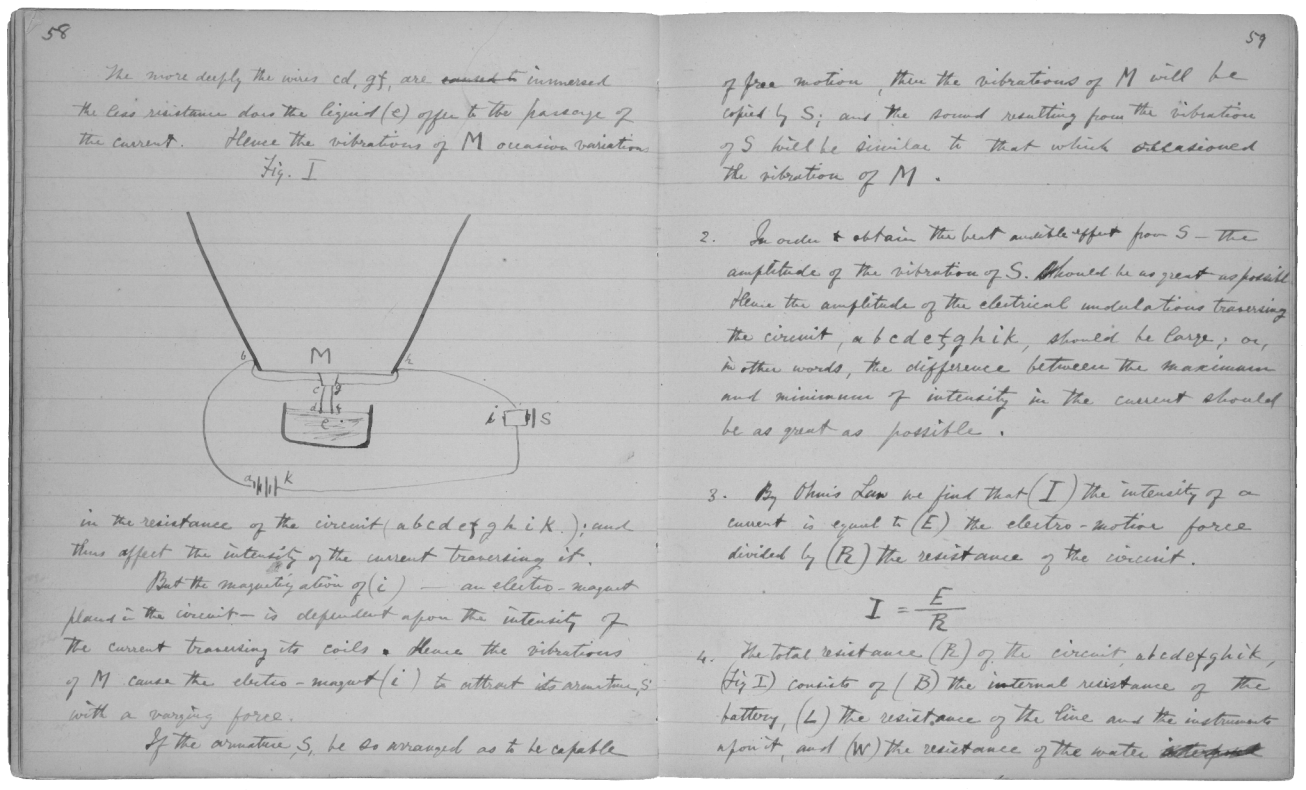 58
The more deeply the wires cd, gf, are caused to immersed
the less resistance does the liquid (e) offer to the passage of
the current. Hence the vibrations of M occasion variations
Fig. I
b M h
c g
d f
e
i S
a k
in the resistance of the circuit (abcdefghik.); and
thus affect the intensity of the current traversing it.
But the magnetization of (i) — an electro-magnet
placed in the circuit — is dependent upon the intensity of
the current traversing its coils. Hence the vibrations
of M cause the electro-magnet (i) to attract its armature, S
with a varying force.
If the armature, S, be so arranged as to be capable
59
of free motion, then the vibrations of M will be
copied by S; and the sound resulting from the vibration
of S will be similar to that which occasioned
the vibration of M.
2. In order to obtain the best audible effect from S — the
amplitude of the vibration of S. Should be as great as possible.
Hence the amplitude of the electrical undulations traversing
the circuit, abcdefghik, should be large; or,
in other words, the difference between the maximum
and minimum of intensity in the current should
be as great as possible.
3. By Ohm's Law we find that (I) the intensity of a
current is equal to (E) the electro-motive force
divided by (R) the resistance of the circuit.
I = E/R
4. The total resistance (R) of the circuit abcdefghik,
(Fig I) consists of (B) the internal resistance of the
battery, (L) the resistance of the line and the instruments
upon it, and (W) the resistance of the water